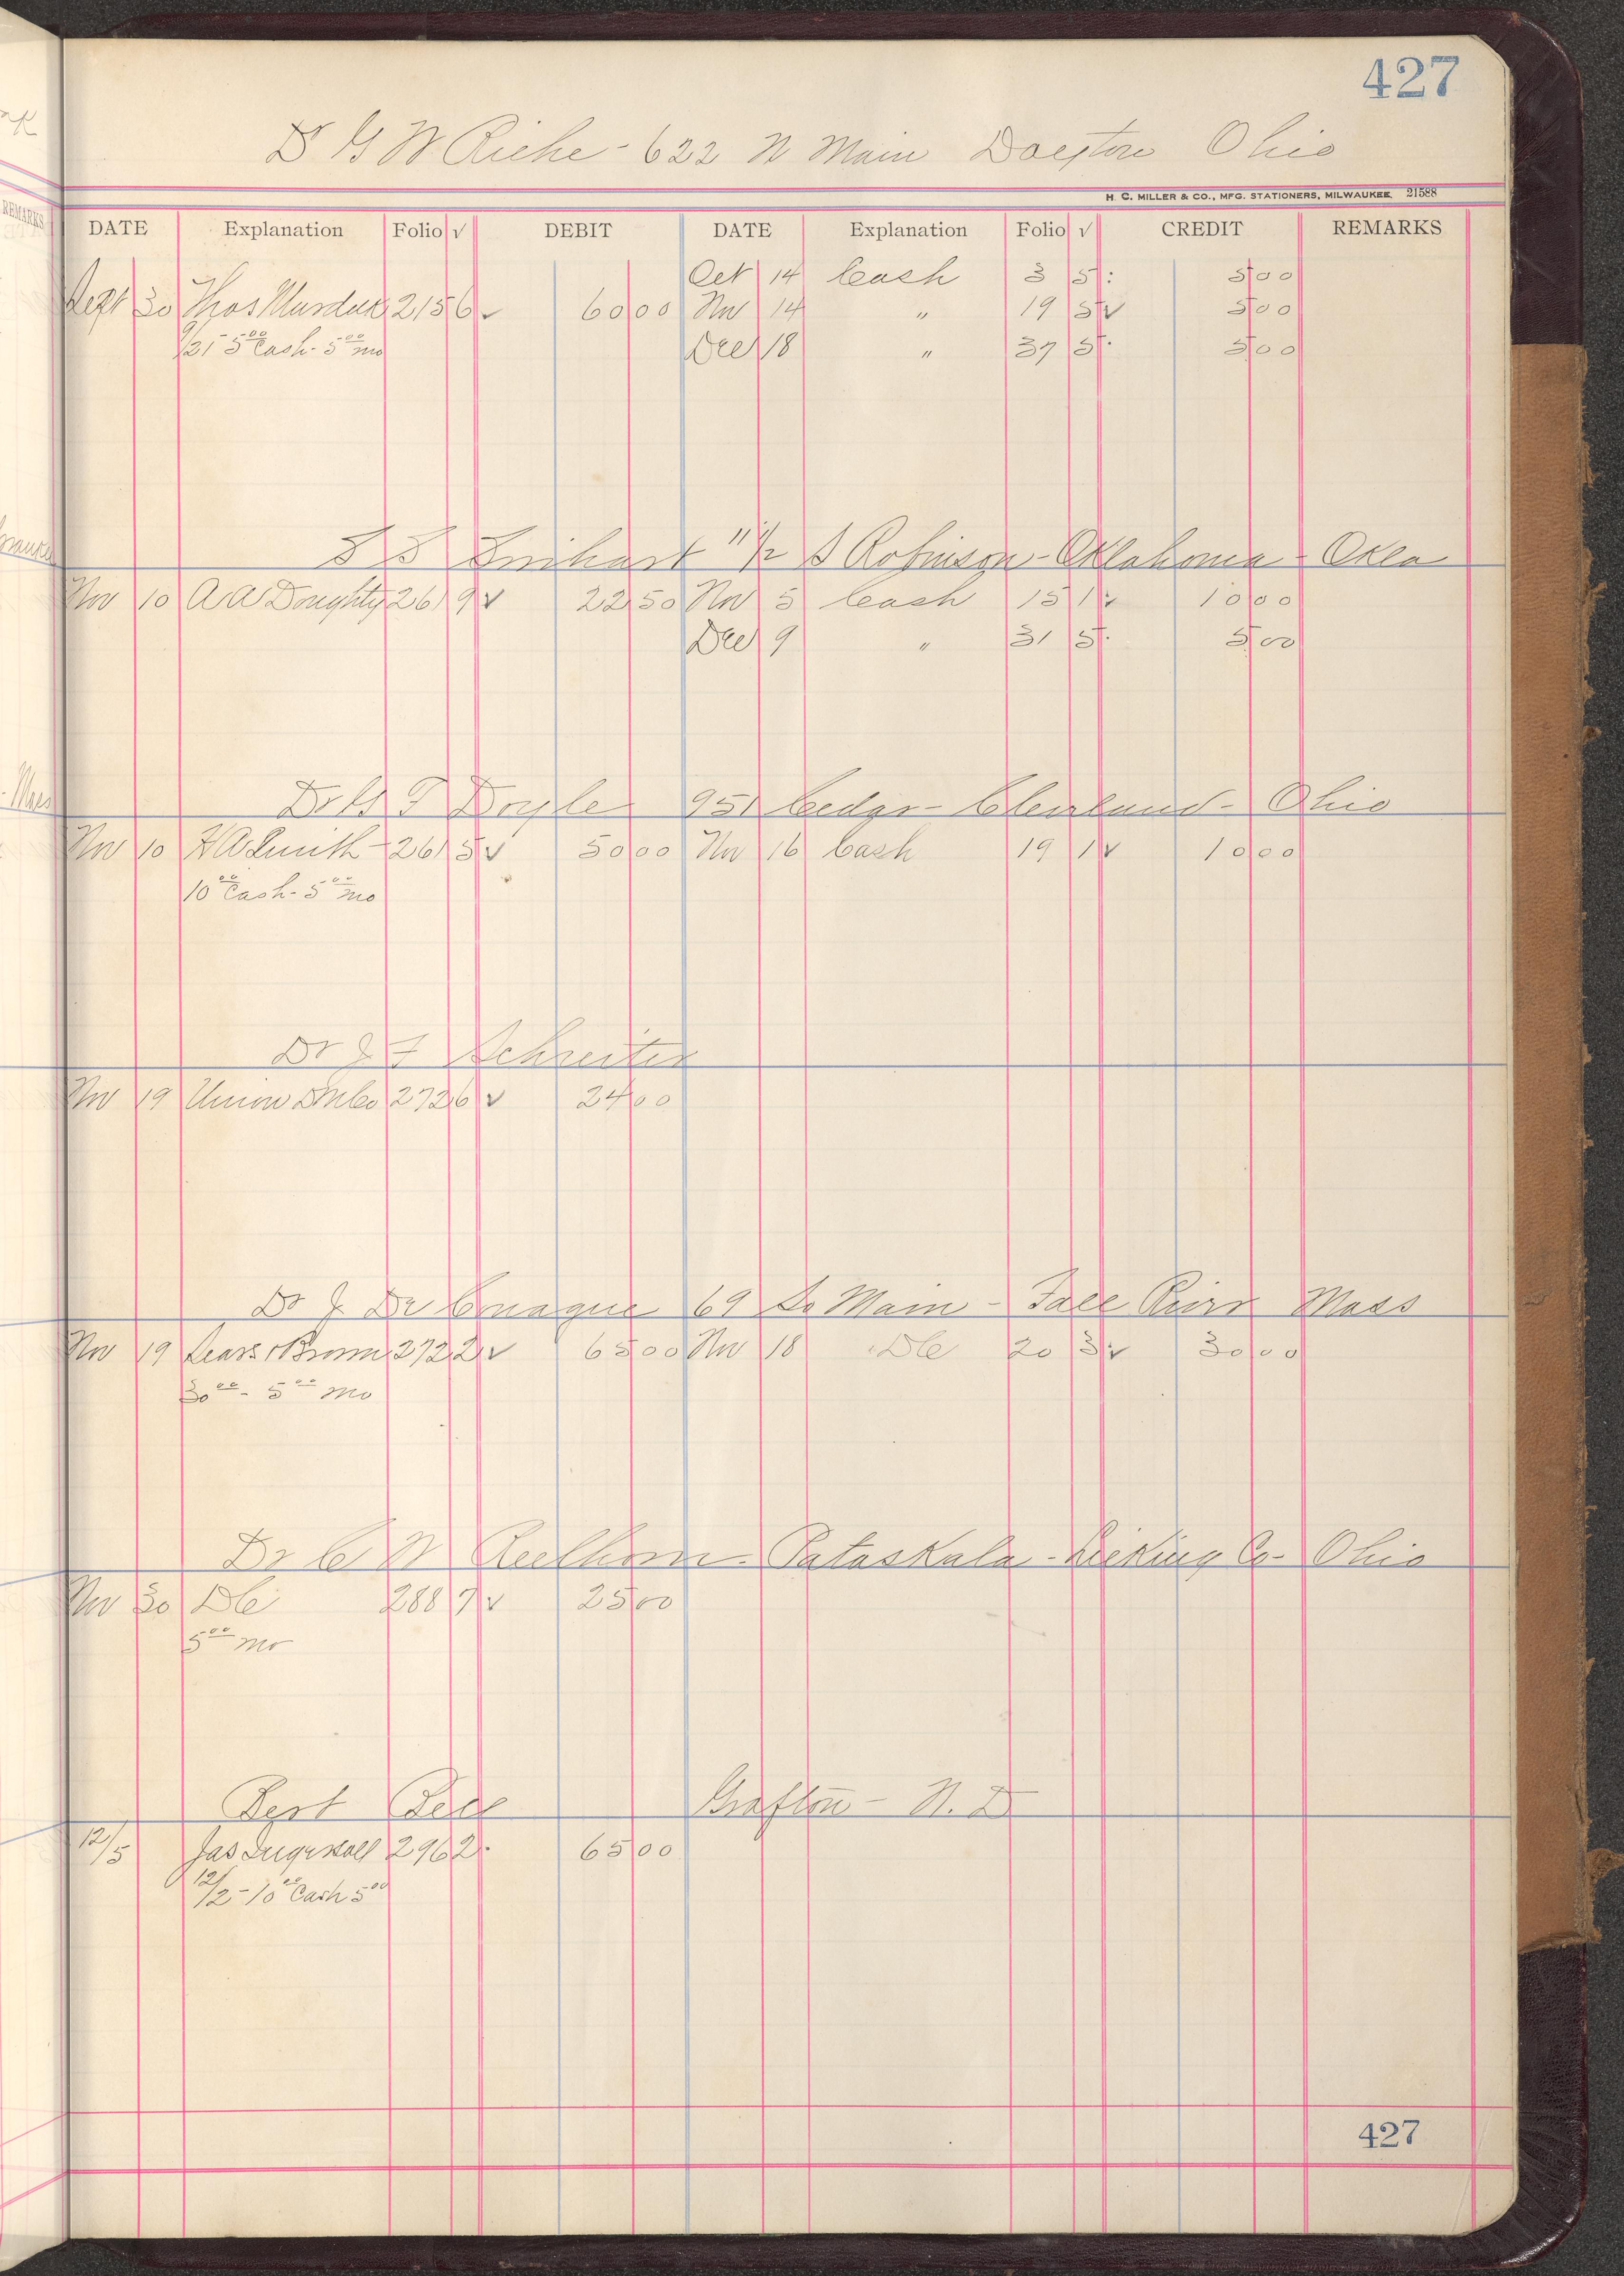 427
Dr G W Riche - 622 N Main Dayton Ohio
H. C. MILLER & CO., MFG. STATIONERS, MILWAUKEE. 21588
DATE Explanation Folio √ DEBIT DATE Explanation Folio √ CREDIT REMARKS
Oct 14 Cash 3 5 5 00
Sept 30 Thos 215 6 √ 60 00 Nov 14 " 19 5 √ 5 00
9/21 5 00 Cash - 5 00 mo Dec 18 " 37 5 5 00
S S 11 1/2 S Robinson - Oklahoma - Okla
Nov 10 A A Doughty 261 9 √ 22 50 Nov 5 Cash 15 1 √ 10 00
Dec 9 " 31 5 5 00
Dr H T Doyle 951 Cedar - Cleveland - Ohio
Nov 10 H A Smith - 261 5 √ 50 00 Nov 16 Cash 19 1 √ 10 00
10 00 Cash - 5 00 mo
Dr J F Schreiter
Nov 19 Union 272 6 √ 24 00
Dr J De 69 So Main - Fall River Mass
Nov 19 Sears & Brown 272 2 √ 65 00 Nov 18 20 3 √ 30 00
30 00 - 5 00 mo
Dr C W Reelhorn - Pataskala - Licking Co - Ohio
Nov 30 288 7 √ 25 00
5 00 mo
Bert Bell Grafton - N. D
12/5 Jas Ingersoll 296 2 65 00
12/2 - 10 00 Cash 5 00
427